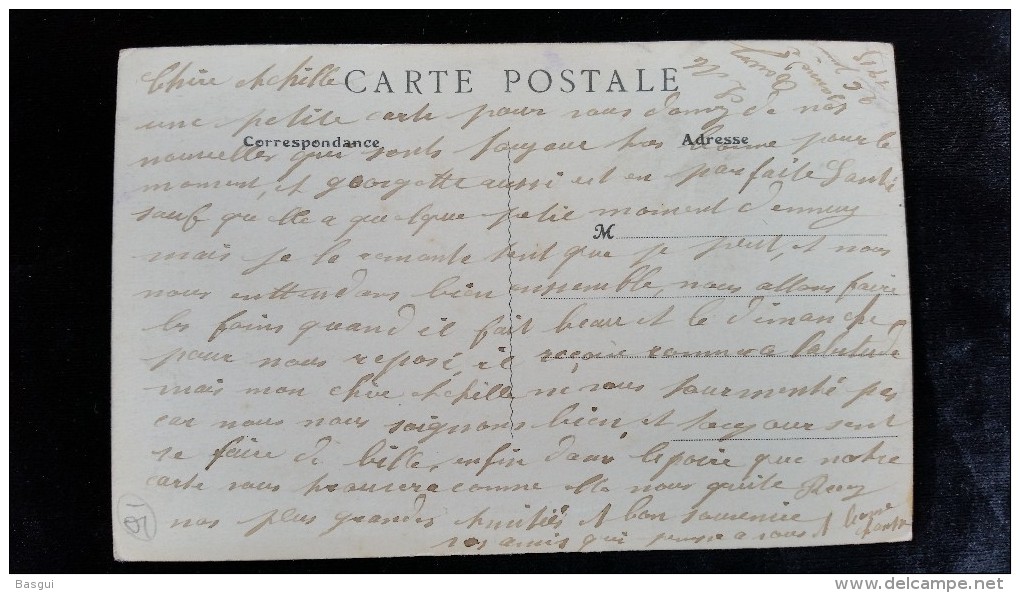 Chère Achille
CARTE POSTALE
une petite carte pour vous donnez de nos
Correspondance
Adresse
nouvelles qui sont toujour très bonne pour le
moment, et georgette aussi est en parfaite Santé
sauf que elle a quelque petie moment d'ennuy
M
mais je la remonte tent que je peut, et nous
nous enttendons bien enssemble, nous allons faire
les foins quand il fait beau et le dimanche
pour nous reposé, il
mais mon chère Achille ne vous tourmenté pas
car nous nous soignons bien et toujour sent
se faire de bille, enfin dans lespoire que notre
carte vous trouvera comme elle nous quite Recy
nos plus grandes amitiés et bon souvenir
vos amis qui pense a vous
91
Basgui
www.delcampe.net